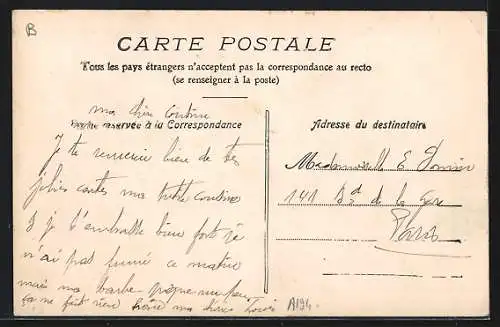 B
CARTE POSTALE
Tous les pays étrangers n'acceptent pas la correspondance au recto
(se renseigner à la poste)
ma chère cousine
réservée à la Correspondance
Adresse du destinataire
Je te remercie bien de tes
jolies cartes ma
Je t'embrasse bien fort je
n'ai pas fumé ce matin
mais ma barbe
ça ne fait rien ma chère
Mademoiselle E
141 Bd de la Gare
Paris
A194